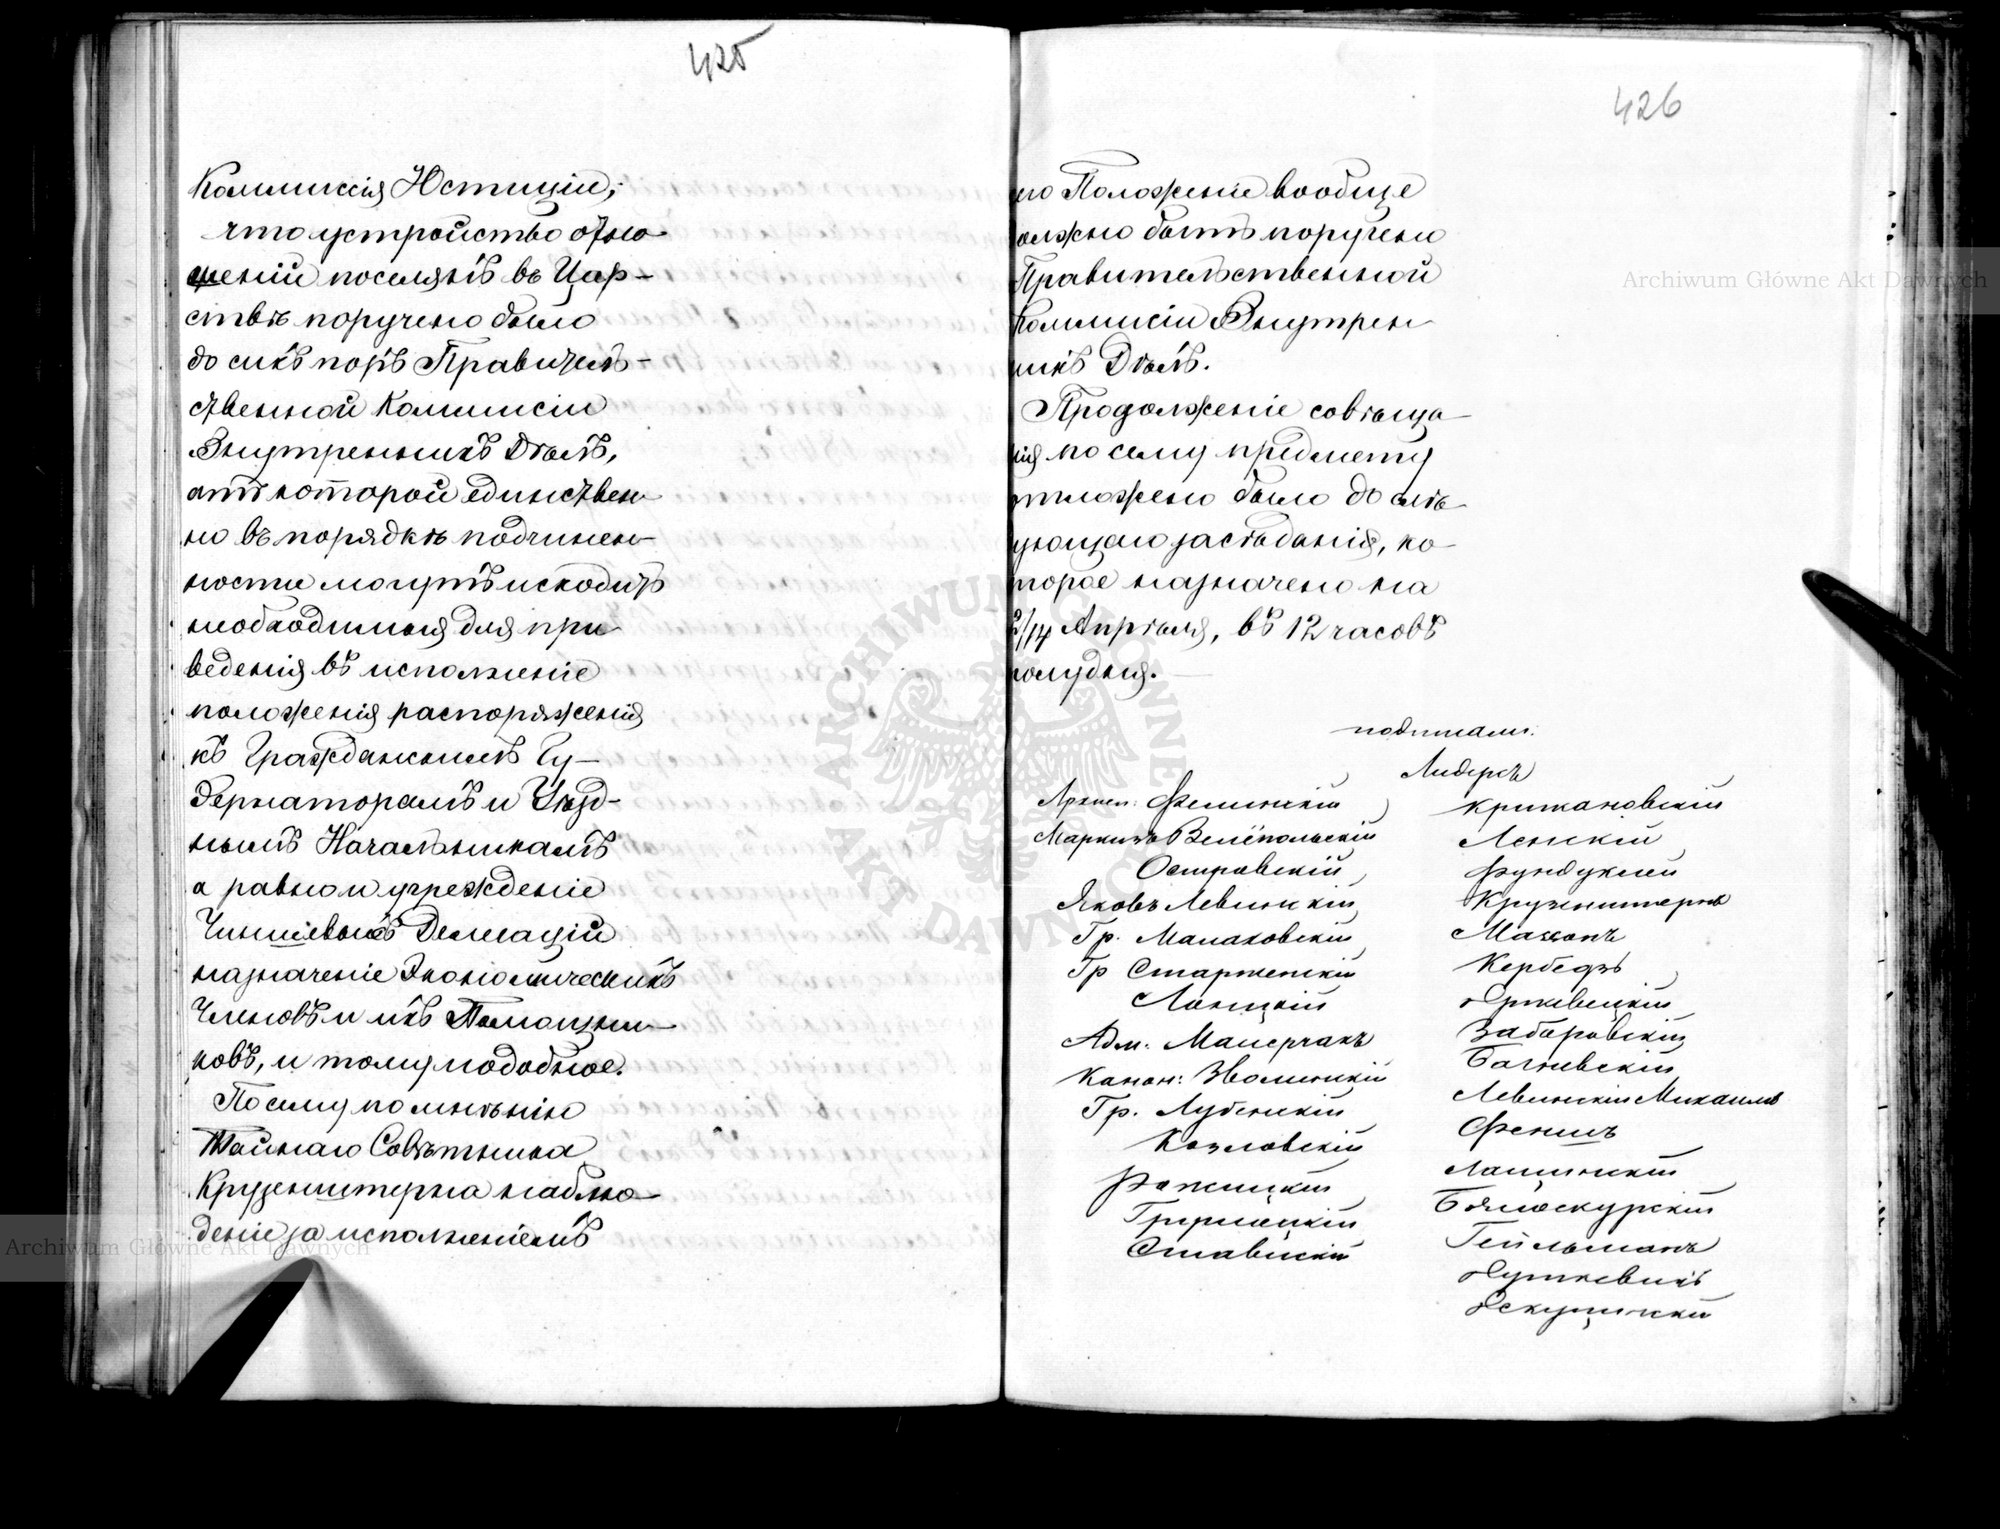 425
Коммиссія Юстиціи;
что устройство отно-
шеній поселянъ въ Цар-
ствѣ поручено было
до сихъ поръ Правитель-
ственной Коммисіи
Внутреннихъ Дѣлъ,
отъ которой единствен-
но въ порядкѣ подчинен-
ности могутъ исходить
необходимыя для при-
веденія въ исполненіе
положенія распоряженія
къ Гражданскимъ Гу-
бернаторамъ и Уѣзд-
нымъ Начальникамъ
а равно и учрежденіе
Чиншевыхъ Делегацій
назначеніе Экономическихъ
Членовъ и ихъ Помощни-
ковъ, и тому подобное.
Посему по мнѣнію
Тайнаго Совѣтника
Крузенштерна наблю-
деніе за исполненіемъ
426
его Положенія вообще
должно быть поручено
Правительственной
Коммисіи Внутрен-
нихъ Дѣлъ.
Продолженіе совѣща-
нія по сему предмету
отложено было до слѣ-
ующаго засѣданія, ко-
торое назначено на
2/14 Апрѣля, въ 12 часовъ
полудня.
подписали:
Лидерсъ
Архіеп: Фелинскій
Маркизъ Велёпольскій
Островскій
Яковъ Левинскій
Гр. Малаховскій
Гр Старженскій
Лонцкій
Адм. Маерчакъ
Канон: Зволинскій
Гр. Лубенскій
Козловскій
Ставискій
Крижановскій
Ленскій
Фундуклей
Крузенштернъ
Массонъ
Кербедзъ
Држевецкій
Заборовскій
Багневскій
Левинскій Михаилъ
Феншъ
Лащинскій
Бялоскурскій
Гейльманъ
Дуткевичъ
Декуцинскій
Archiwum Główne Akt Dawnych
Archiwum Główne Akt Dawnych
ARCHIWUM GŁÓWNE AKT DAWNYCH